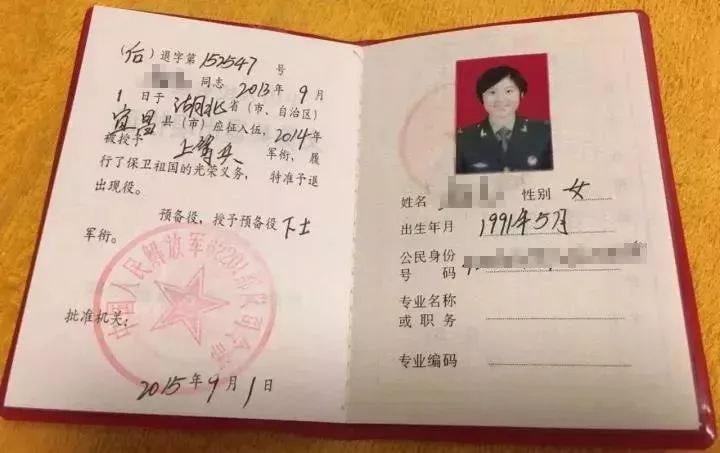 (后)退字第152547号
同志2013年9月
1日于湖北省(市、自治区)
宜昌县(市)应征入伍,2014年
被授予上等兵军衔,履
行了保卫祖国的光荣义务,特准予退
出现役。
预备役,授予预备役下士
军衔。
批准机关:
中国人民解放军
部
2015年9月1日
姓名 性别女
出生年月1991年5月
公民身份
号码
专业名称
或职务
专业编码